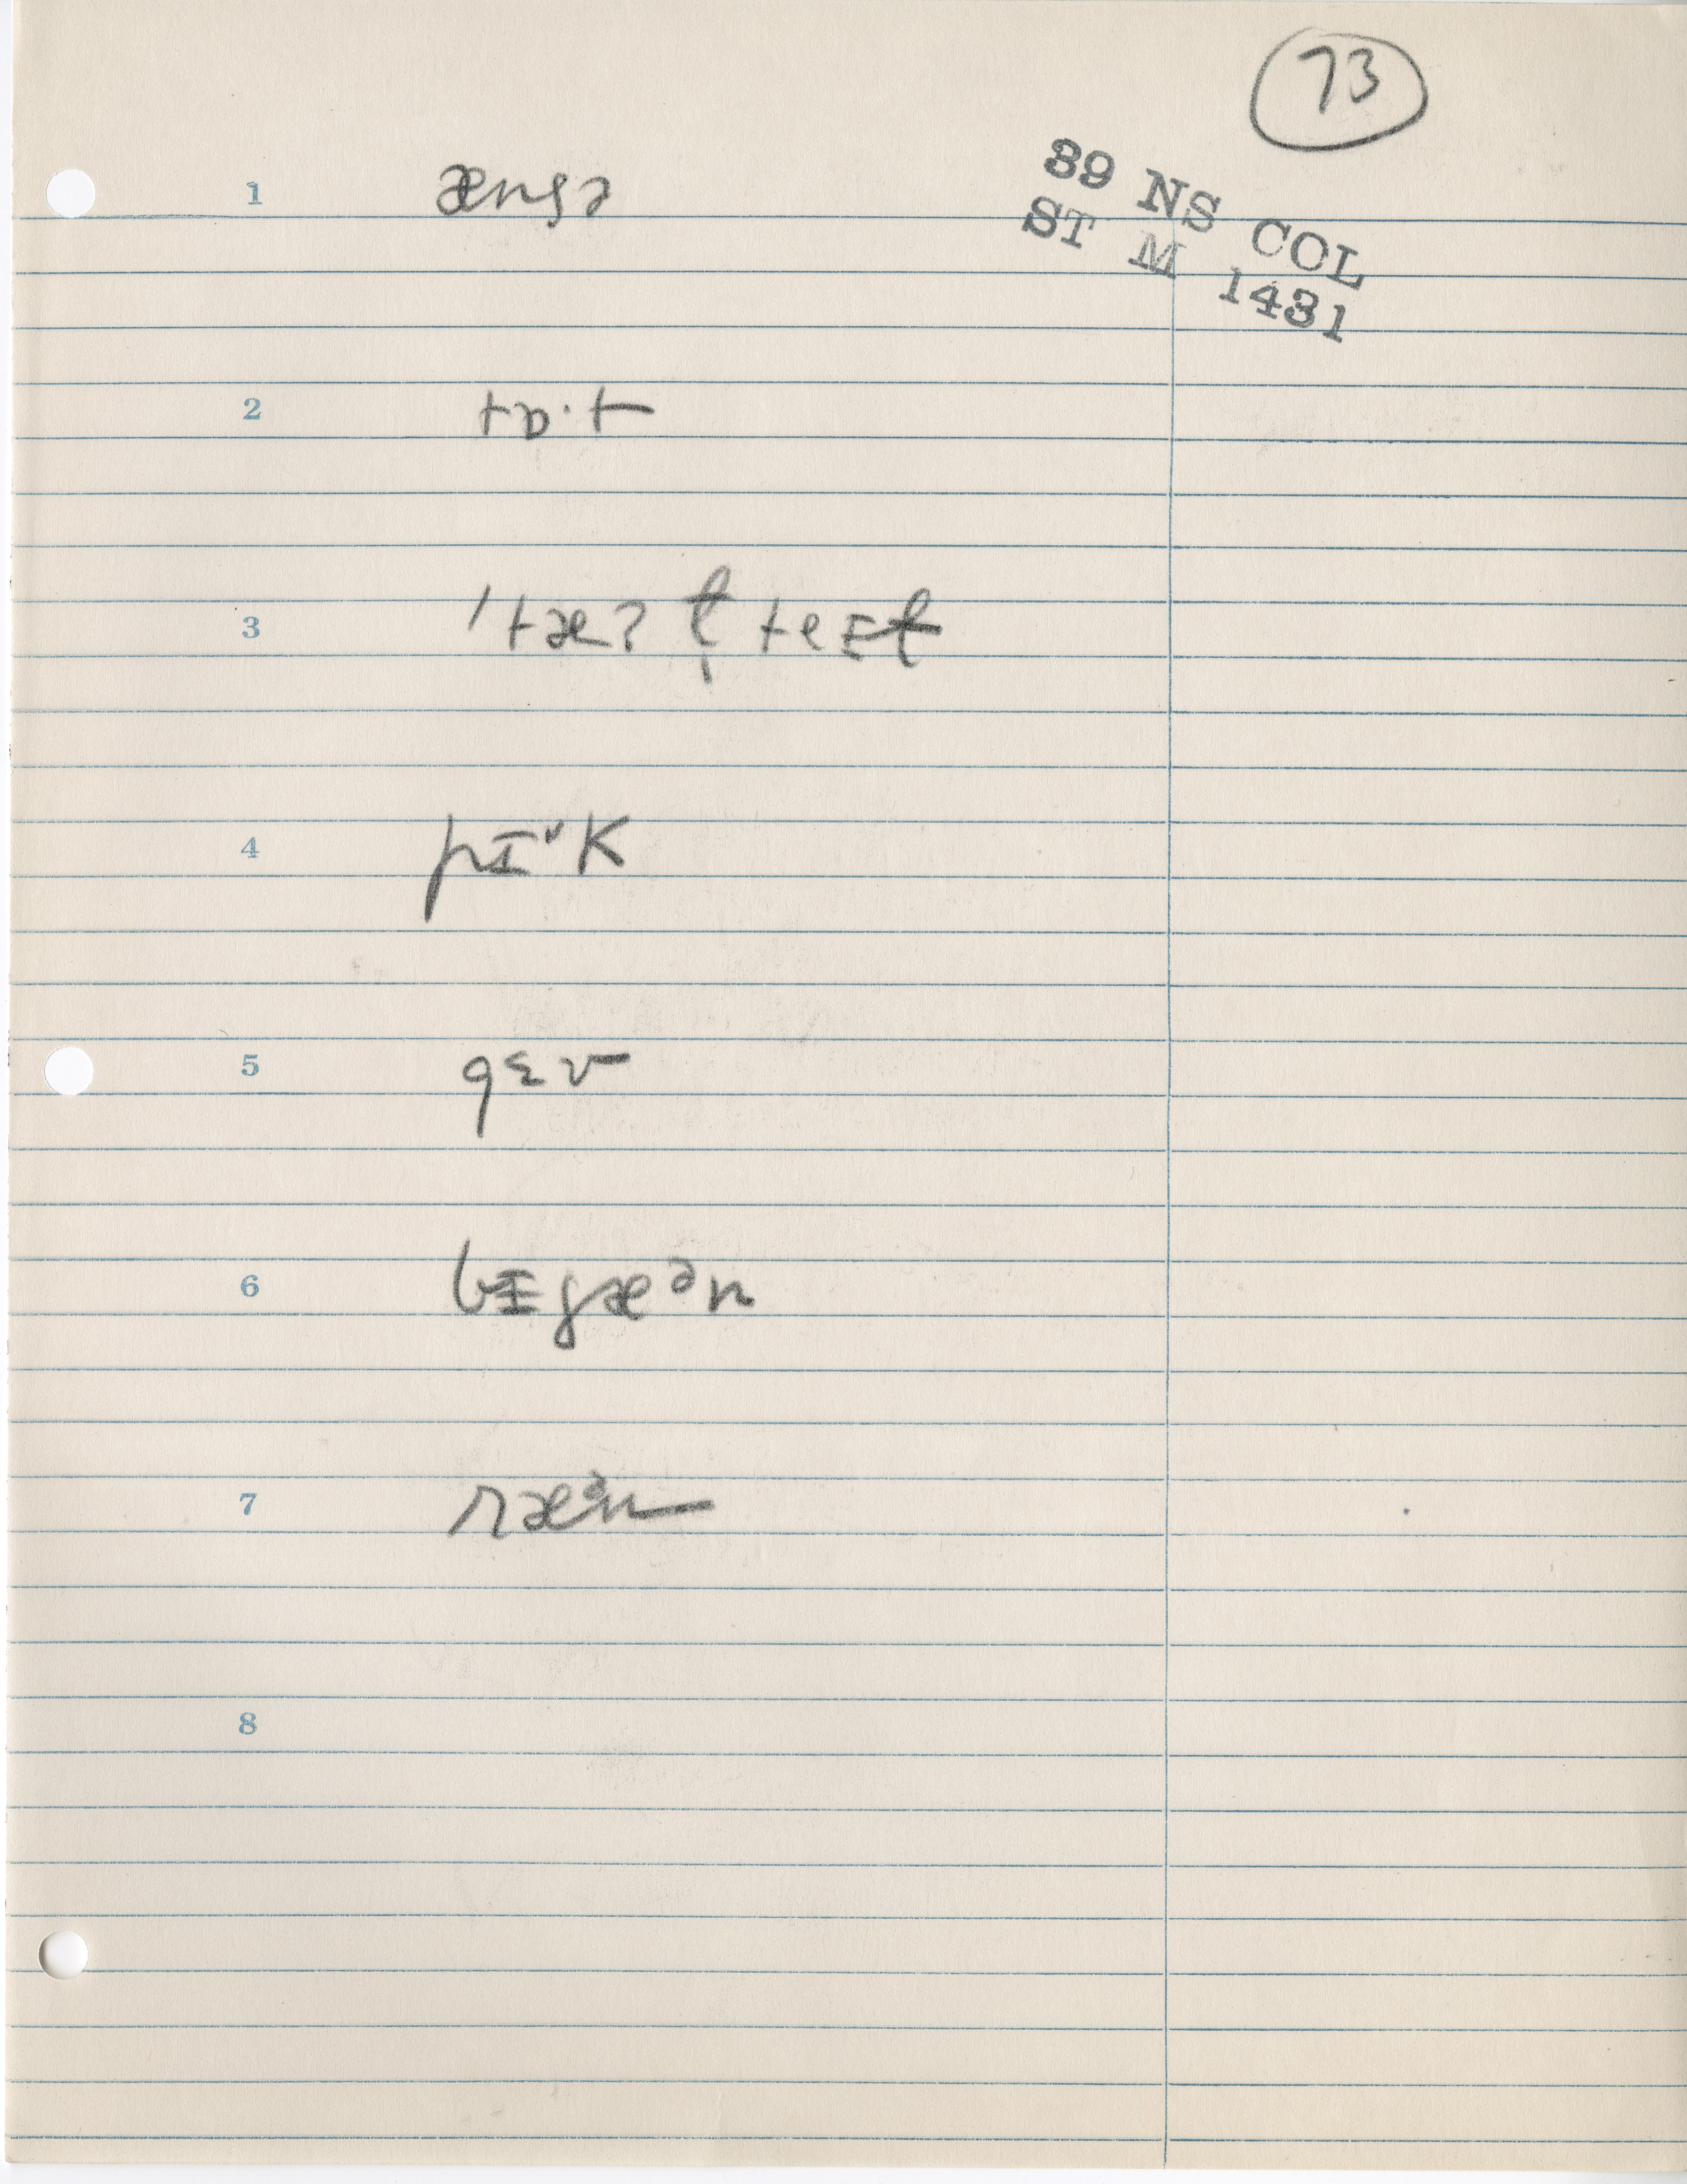 73
89 NS COL
ST M 1431
1 ænsə
2 tɒ·t
3 'tæʔ t̩ teɪt
4 pɪˇk
5 gɛv
6 bɪgæᵊn
7 ræᵊn
8